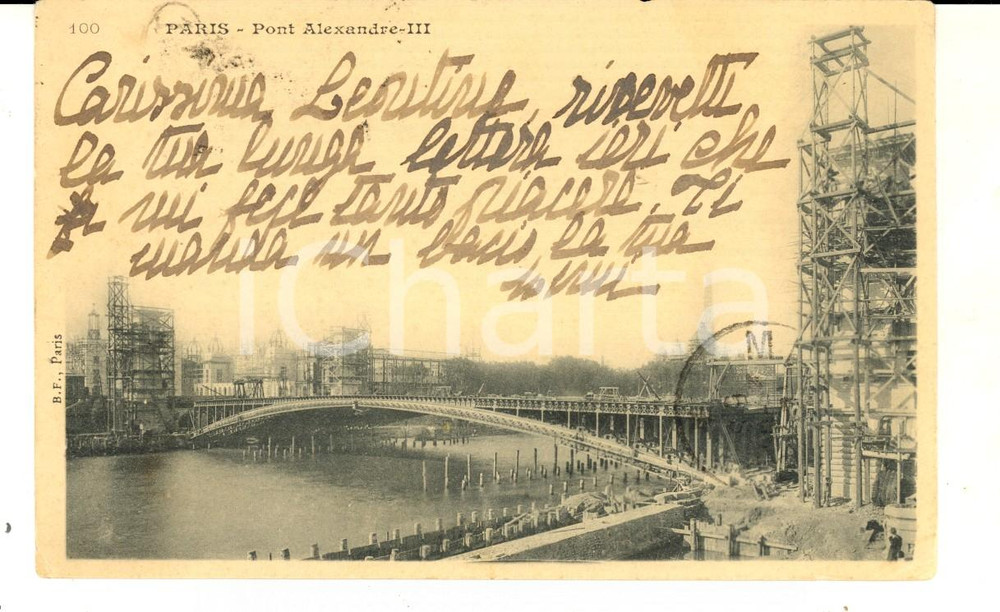 100 PARIS - Pont Alexandre-III
Carissima Leontina, ricevetti
la tua lunga lettera ieri che
mi fece tanto piacere. Ti
manda un bacio la tua
B.F., Paris
iCharta
M